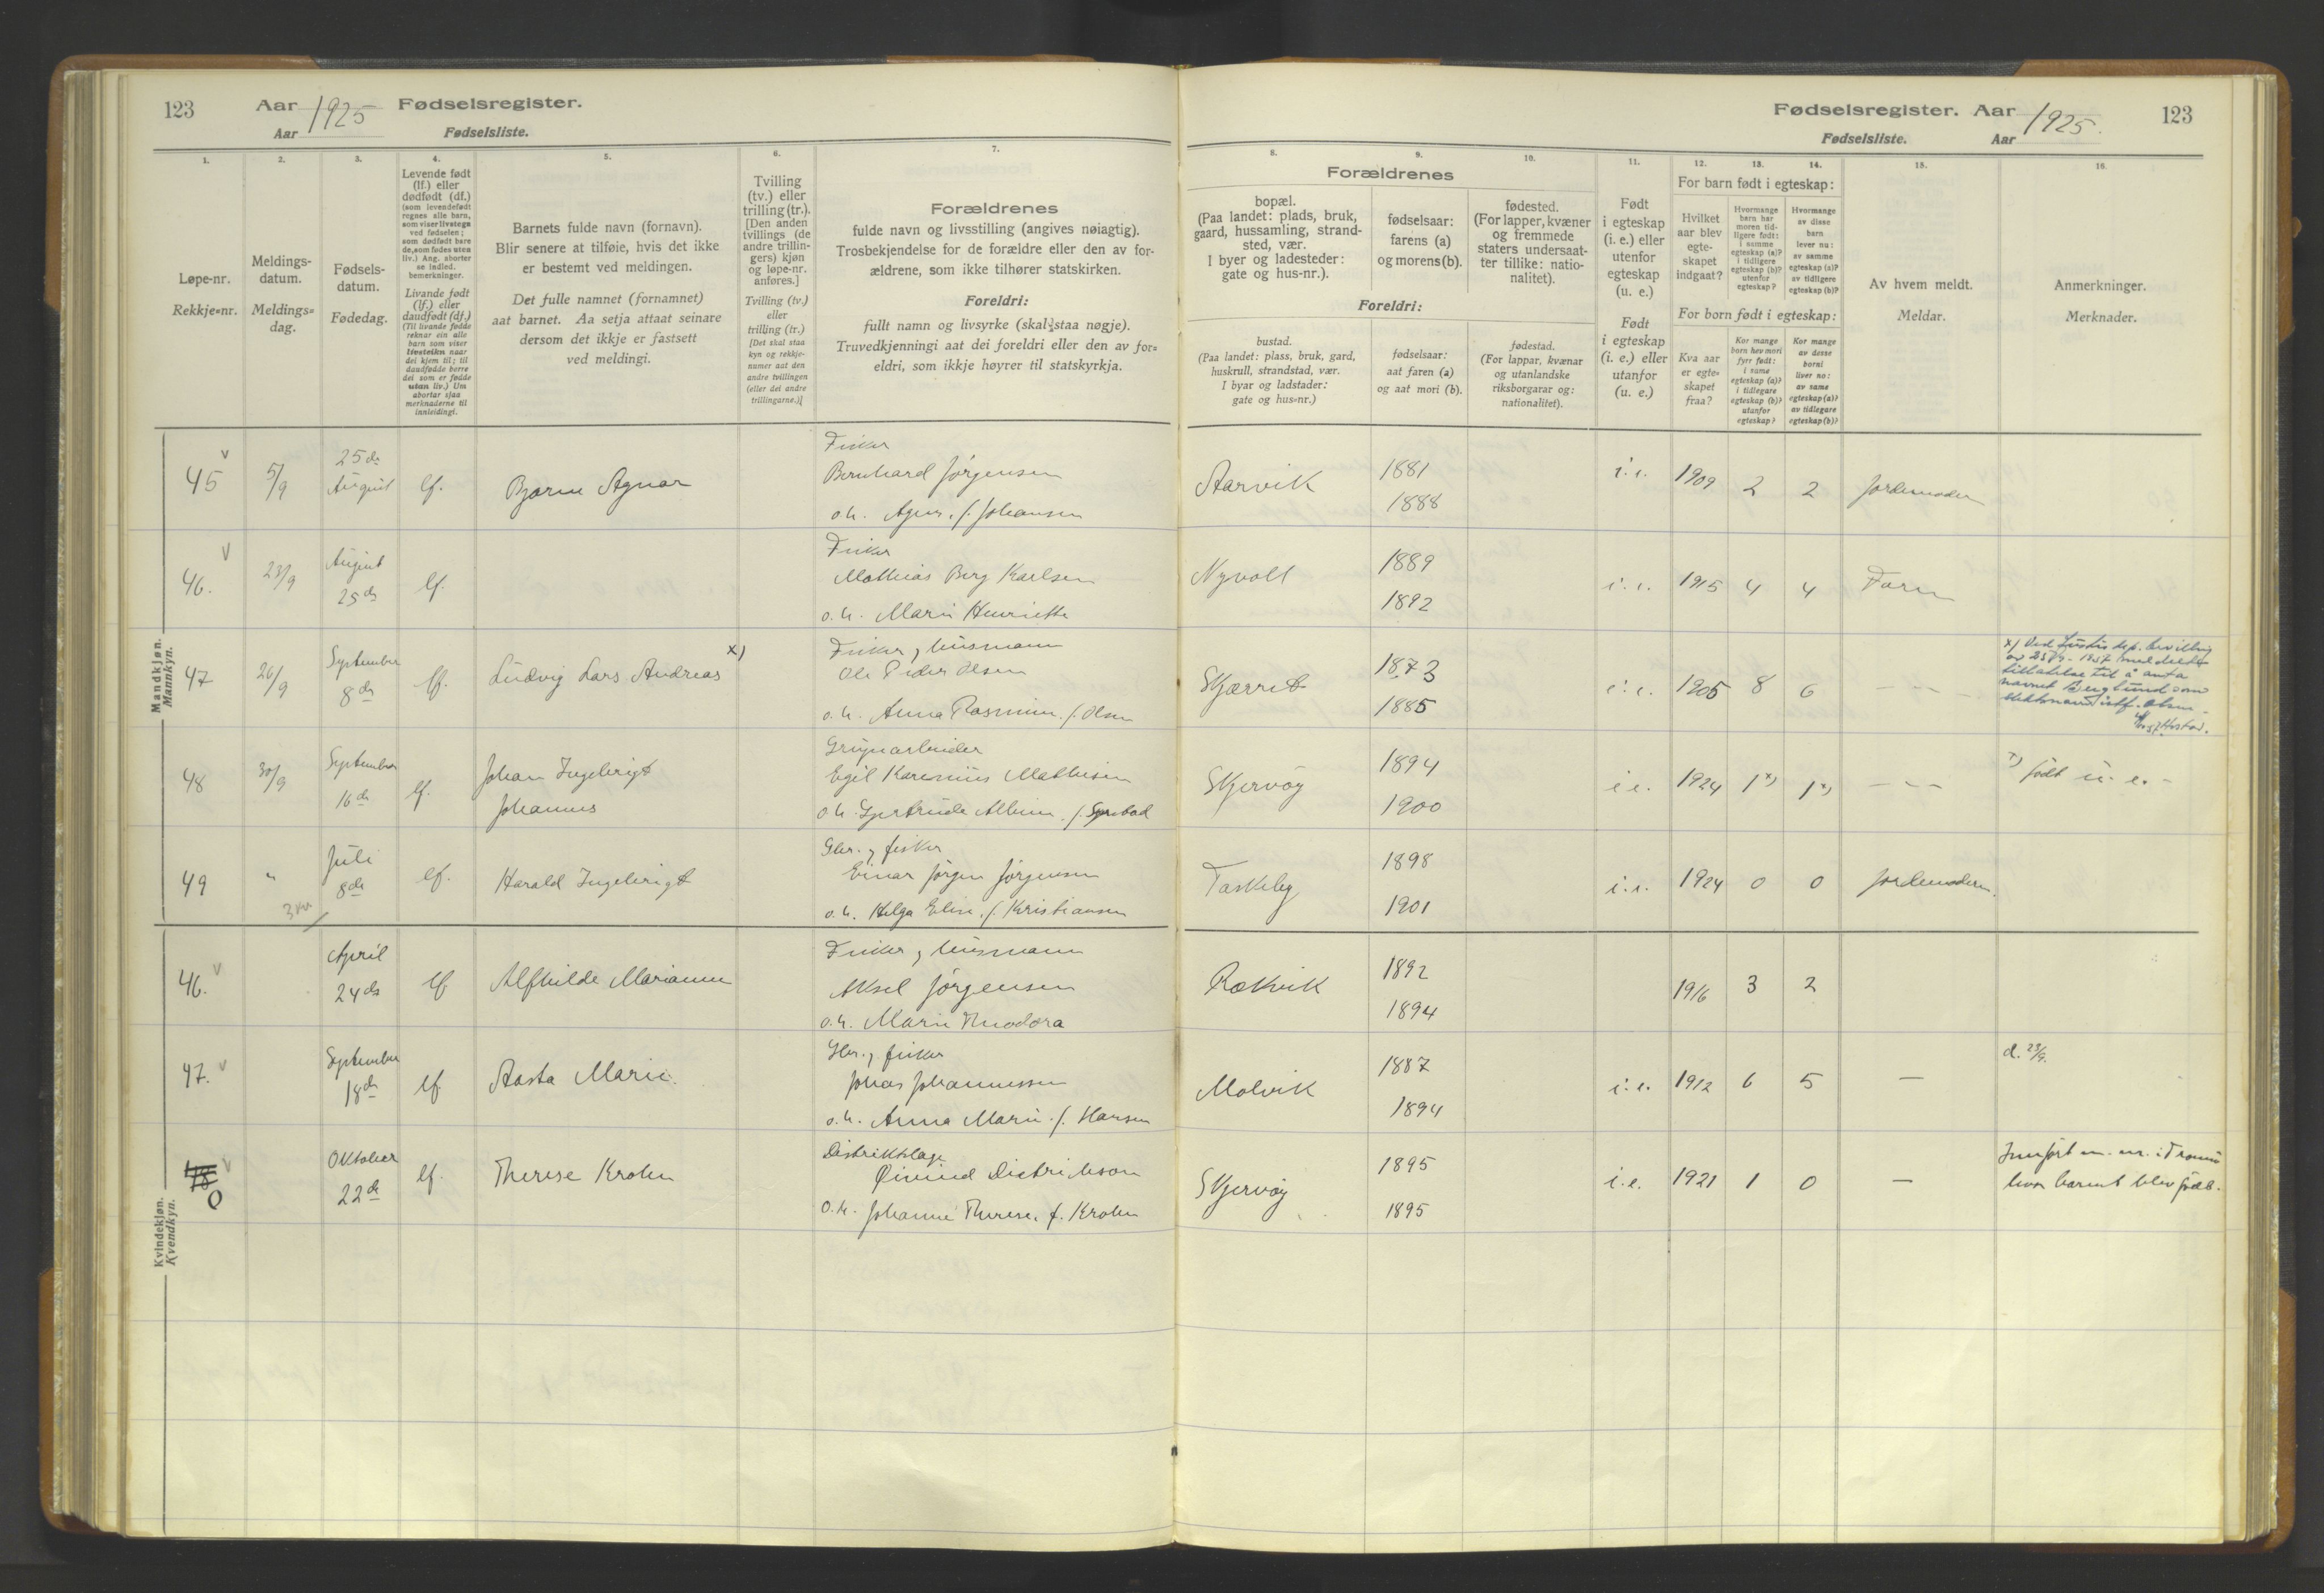 123 Aar 1925 Fødselsregister.
Aar Fødselsliste.
1. 2. 3. 4. 5. 6. 7.
Løpe-nr.
Rekkje=nr.
Meldings-
datum.
Meldings=
dag.
Fødsels-
datum.
Fødedag.
Levende født
(lf.) eller
dødfødt (df.)
(som levendefødt
regnes alle barn,
som viser livstegn
ved fødselen;
som dødfødt bare
de, som fødes uten
liv.) Ang. aborter
se indled.
bemerkninger.
Livande født
(lf.) eller
daudfødt (df.)
(Til livande fødde
reknar ein alle
barn som viser
livsteikn naar
dei kjem til; til
daudfødde berre
dei som er fødde
utan liv.) Um
abortar sjaa
merknaderne til
innleidingi.
Barnets fulde navn (fornavn).
Blir senere at tilføie, hvis det ikke
er bestemt ved meldingen.
Det fulle namnet (fornamnet)
aat barnet. Aa setja attaat seinare
dersom det ikkje er fastsett
ved meldingi.
Tvilling
(tv.) eller
trilling (tr.).
[Den anden
tvillings (de
andre trillin-
gers) kjøn
og løpe-nr.
anføres.]
Tvilling (tv.)
eller
trilling (tr.)
[Det skal staa
kyn og rekkje-
numer aat den
andre tvillingen
(eller dei andre
trillingarne.)]
Forældrenes
fulde navn og livsstilling (angives nøiagtig).
Trosbekjendelse for de forældre eller den av for-
ældrene, som ikke tilhører statskirken.
Foreldri:
fullt namn og livsyrke (skal staa nøgje).
Truvedkjenningi aat dei foreldri eller den av for=
eldri, som ikkje høyrer til statskyrkja.
Mandkjøn.
Mannkyn.
45 5/9 25de August lf. Bjarne Agnar
Fisker
Bernhard Jörgensen
o. h. Agnes, f. Johansen
46. 23/9 August 25de lf.
Fisker
Mathias Berg Karlsen
o. h. Marie Henriette
47 26/9 September 8de lf. Ludvig Lars Andreas x)
Fisker, husmann
Ole Peder Olsen
o. h. Anna Rasmine, f. Olsen
48 30/9 September 16de lf. Johan Ingebrigt
Johannes
Egil Karenius Mathisen
49 " Juli 8de lf. Harald Ingebrigt
Gbr., fisker
Einar Jörgen Jörgensen
o. h. Helga Elise, f. Kristiansen
Kvindekjøn.
Kvendkyn.
46. April 24de lf Alfhilde Marianne
Fisker, husmann
Aksel Jörgensen
o. h. Marie Theodora
47. September 18de lf Aasta Marie
Gbr., fisker
Jonas Johannessen
o. h. Anna Marie f. Hansen
48 0 Oktober 22de lf. Therese Krohn
Distriktslæge
Øivind
o. h. Johanne Therese, f. Krohn
Fødselsregister. Aar 1925. 123
Fødselsliste. Aar
8. 9. 10. 11. 12. 13. 14. 15. 16.
Forældrenes
bopæl.
(Paa landet: plads, bruk,
gaard, hussamling, strand-
sted, vær.
I byer og ladesteder:
gate og hus-nr.).
fødselsaar:
farens (a)
og morens (b).
fødested.
(For lapper, kvæner
og fremmede
staters undersaat-
ter tillike: natio-
nalitet).
Foreldri:
bustad.
(Paa landet: plass, bruk, gard,
huskrull, strandstad, vær.
I byar og ladstader:
gate og hus=nr.)
fødselsaar:
aat faren (a)
og aat mori (b).
fødestad.
(For lappar, kvænar
og utanlandske
riksborgarar og:
nationalitet).
Født
i egteskap
(i. e.) eller
utenfor
egteskap
(u. e.)
Født
i egteskap
(i. e.) eller
utanfor
(u. e.)
For barn født i egteskap:
Hvilket
aar blev
egte-
skapet
indgaat?
Hvormange
barn har
moren tid-
ligere født:
i samme
egteskap (a)?
i tidligere
egteskap (b)?
utenfor
egteskap?
Hvormange
av disse
barn
lever nu:
av samme
egteskap (a)?
av tidligere
egteskap (b)?
For born født i egteskap:
Kva aar
er egte-
skapet
fraa?
Kor mange
born hev mori
fyrr født:
i same
egteskap (a)?
i tidlegare
egteskap (b)?
utanfor
egteskap?
Kor mange
av desse
borni
liver no:
av same
egteskap (a)?
av tidlegare
egteskap (b)?
Av hvem meldt.
Meldar.
Anmerkninger.
Merknader.
Aarvik 1881 1888 i. e. 1909 2 2 Jordemoder
Nyvoll 1889 1892 i. e. 1915 4 4 Faren
1873 1885 i. e. 1905 8 6 — — —
x) Ved Justis dep. bevilling
tillatelse til å anta
navnet Berglund som
slektsnavn istf. Olsen
Skjervöy 1894 1900 i e. 1924 1x) 1x) — — — x) født u. e. -
Taskeby 1898 1901 i. e. 1924 0 0 Jordemoderen.
Rækvik 1892 1894 1916 3 2
Molvik 1887 1894 i. e. 1912 6 5 — d. 23/9.
Skjervöy 1895 1895 i. e. 1921 1 0 —
hvor barnet blev født.